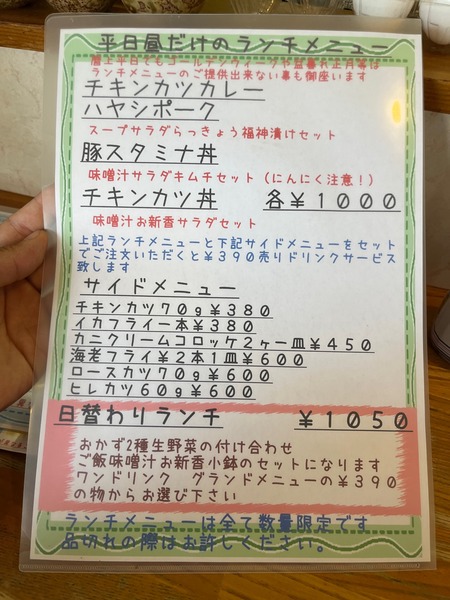 平日昼だけのランチメニュー
暦上平日でもゴールデンウィークや盆暮れ正月等は
ランチメニューのご提供出来ない事も御座います
チキンカツカレー
ハヤシポーク
スープサラダらっきょう福神漬けセット
豚スタミナ丼
味噌汁サラダキムチセット(にんにく注意!)
チキンカツ丼 各¥1000
味噌汁お新香サラダセット
上記ランチメニューと下記サイドメニューをセット
でご注文いただくと¥390売りドリンクサービス
致します
サイドメニュー
チキンカツ70g¥380
イカフライ一本¥380
カニクリームコロッケ2ヶ一皿¥450
海老フライ¥2本1皿¥600
ロースカツ70g¥600
ヒレカツ60g¥600
日替わりランチ ¥1050
おかず2種生野菜の付け合わせ
ご飯味噌汁お新香小鉢のセットになります
ワンドリンク グランドメニューの¥390
の物からお選び下さい
ランチメニューは全て数量限定です
品切れの際はお許しください。